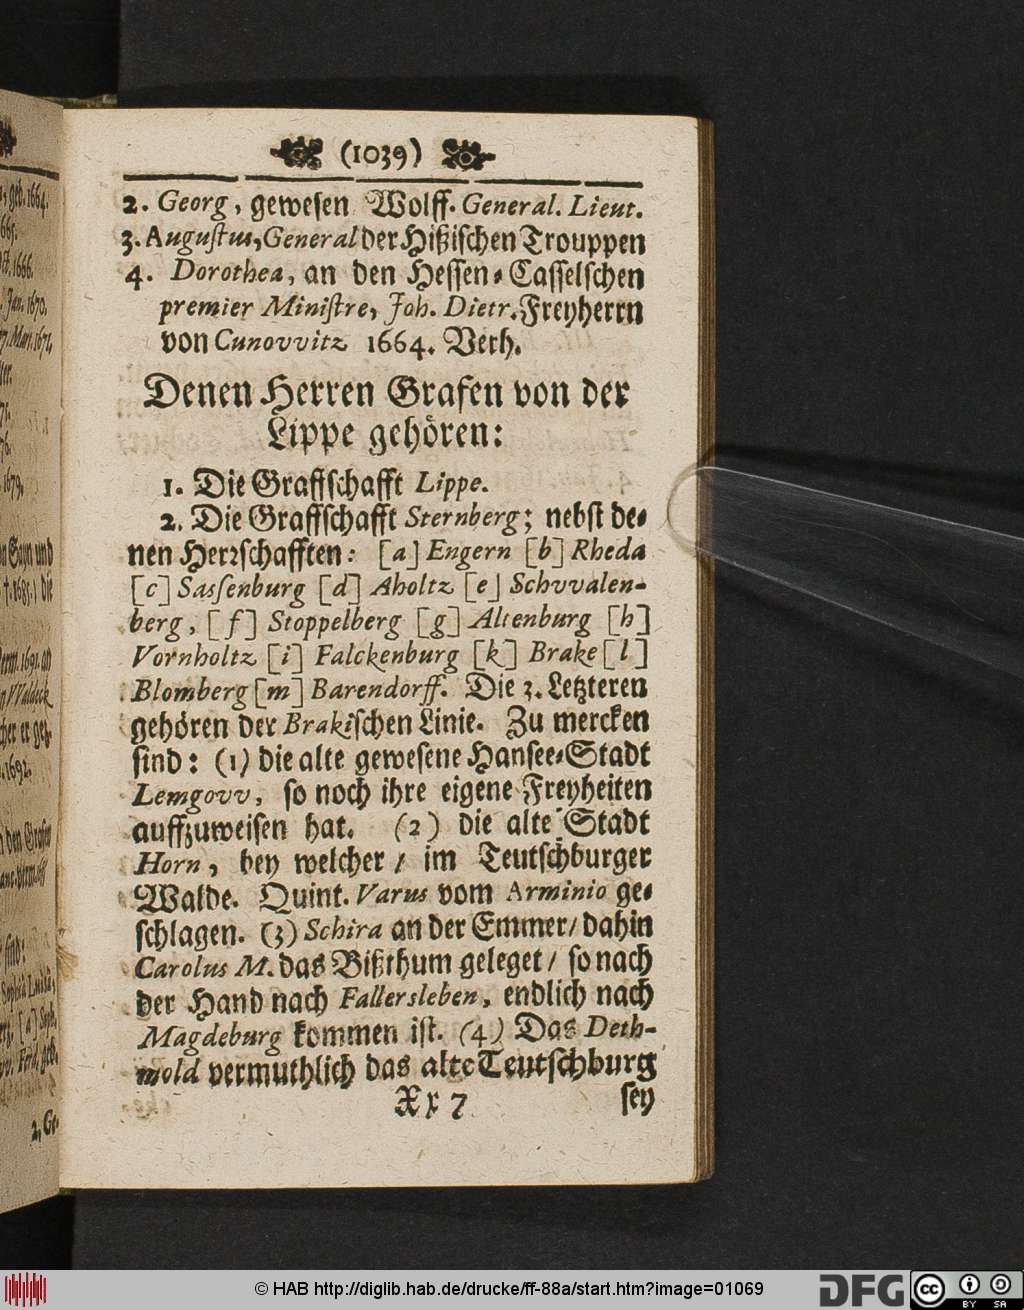 (1039)
2. Georg, gewesen Wolff. General. Lieut.
3. Augustus, General der Hißischen Trouppen
4. Dorothea, an den Hessen-Casselschen
premier Ministre, Joh. Dietr. Freyherrn
von Cunovvitz 1664. Verh.
Denen Herren Grafen von der
Lippe gehören:
1. Die Graffschafft Lippe.
2. Die Graffschafft Sternberg; nebst de-
nen Herrschafften: [a] Engern [b] Rheda
[c] Sassenburg [d] Aholtz [e] Schvvalen-
berg, [f] Stoppelberg [g] Altenburg [h]
Vornholtz [i] Falckenburg [k] Brake [l]
Blomberg [m] Barendorff. Die 3. Letzteren
gehören der Brakischen Linie. Zu mercken
sind: (1) die alte gewesene Hansee-Stadt
Lemgovv, so noch ihre eigene Freyheiten
auffzuweisen hat. (2) die alte Stadt
Horn, bey welcher / im Teutschburger
Walde. Quint. Varus vom Arminio ge-
schlagen. (3) Schira an der Emmer / dahin
Carolus M. das Bißthum geleget / so nach
der Hand nach Fallersleben, endlich nach
Magdeburg kommen ist. (4) Das Deth-
mold vermuthlich das alte Teutschburg
Xx 7 sey
© HAB http://diglib.hab.de/drucke/ff-88a/start.htm?image=01069
DFG cc BY SA